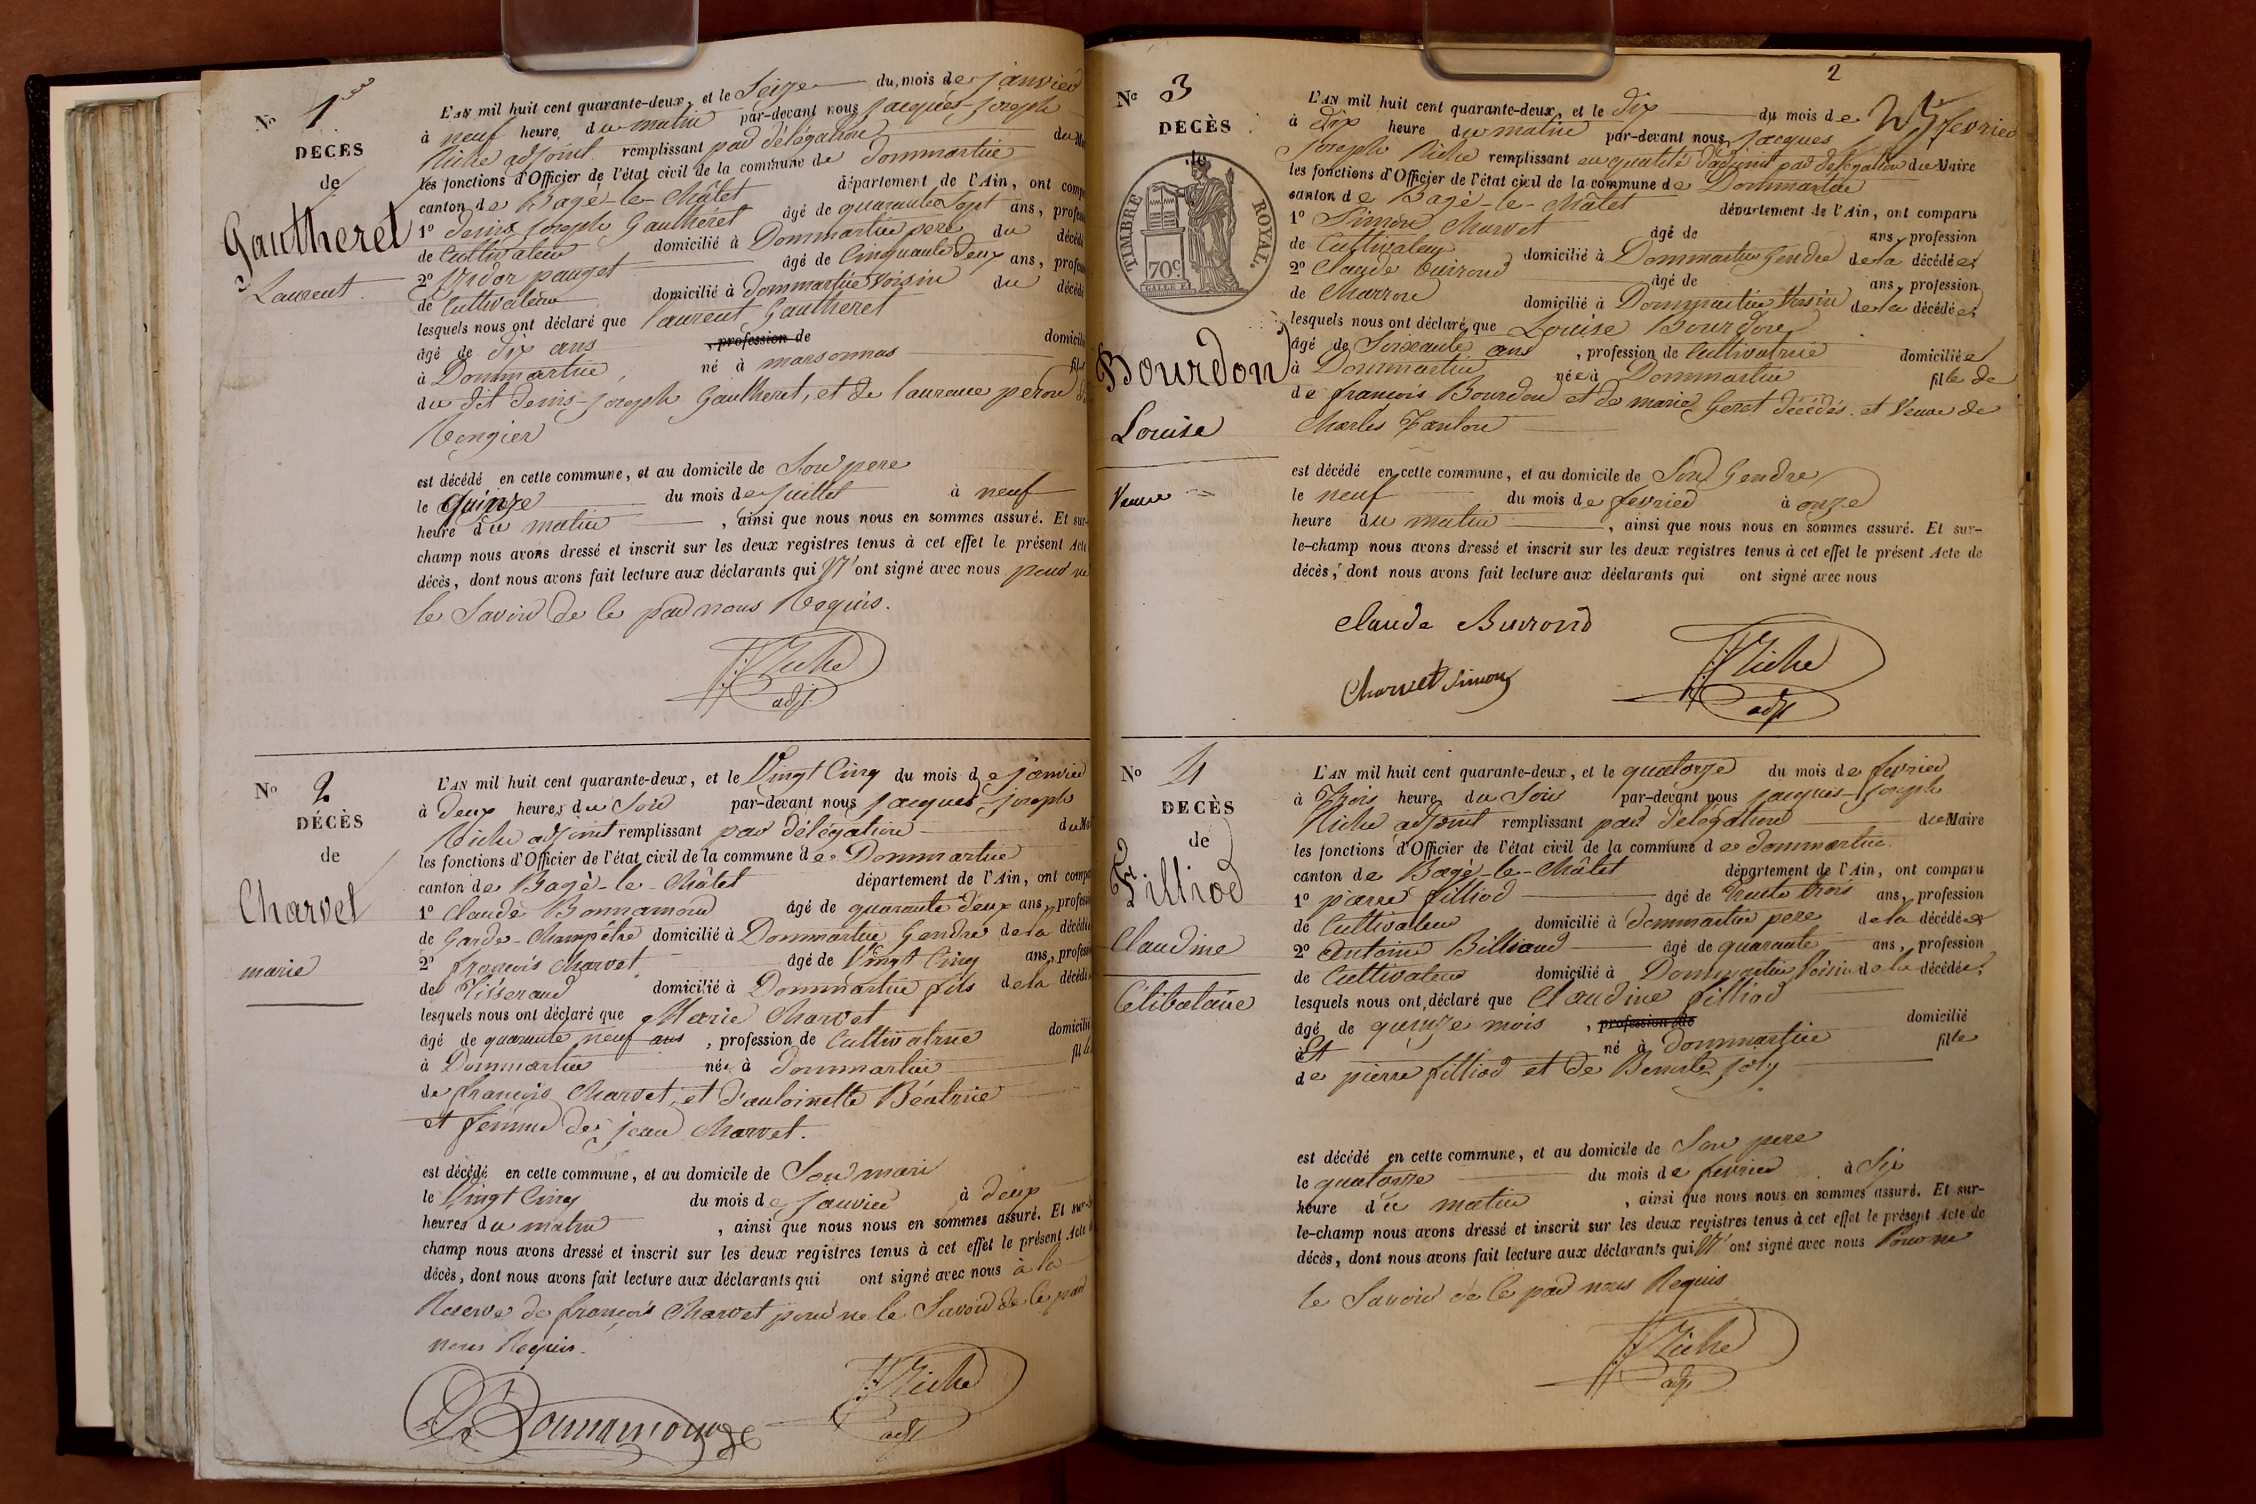 No 1er
DECES
de
Gautheret
Laurent
L'AN mil huit cent quarante-deux, et le Seize du mois de janvier
à neuf heure du matin par-devant nous jacques-joseph
Riche adjoint remplissant par délégation du
les fonctions d'Officier de l'état civil de la commune de Dommartin
canton de Bagé-le-Châtel département de l'Ain, ont
1o denis joseph Gautheret âgé de quarante Sept ans,
de Cultivateur domicilié à Dommartin pere du
2o pauget âgé de Cinquante deux ans,
de Cultivateur domicilié à dommartin Voisin du
lesquels nous ont déclaré que laurent Gautheret
âgé de dix ans , profession de
à Dommartin , né à marsonnas
du dit denis-joseph Gautheret, et de
est décédé en cette commune, et au domicile de Son pere
le Quinze du mois de juillet à neuf
heure du matin , ainsi que nous nous en sommes assuré. Et sur-
champ nous avons dressé et inscrit sur les deux registres tenus à cet effet le présent Acte
décès, dont nous avons fait lecture aux déclarants qui N'ont signé avec nous pour ne
le Savoir de le par nous Requis.
Riche
adj.
No 2
DÉCÈS
de
Charvet
marie
L'AN mil huit cent quarante-deux, et le Vingt Cinq du mois de janvier
à deux heures du Soir par-devant nous jacques-joseph
Riche adjoint remplissant par délégation du
les fonctions d'Officier de l'état civil de la commune de Dommartin
canton de Bagé-le-Châtel département de l'Ain, ont
1o Claude Bonnamour âgé de quarante deux ans,
de Garde-Champêtre domicilié à Dommartin Gendre de la
2o françois Charvet âgé de Vingt Cinq ans,
de Tisserand domicilié à Dommartin fils de la
lesquels nous ont déclaré que Marie Charvet
âgé de quarante neuf ans , profession de Cultivatrice
à Dommartin née à dommartin
de françois Charvet, et d'antoinette Béatrice
et femme de jean Charvet.
est décédé en cette commune, et au domicile de Son mari
le Vingt Cinq du mois de janvier à deux
heures du matin , ainsi que nous nous en sommes assuré. Et
champ nous avons dressé et inscrit sur les deux registres tenus à cet effet le présent Acte
décès, dont nous avons fait lecture aux déclarants qui ont signé avec nous à la
Reserve de françois Charvet pour ne le Savoir de le par
nous Requis.
Bonnamour
Riche
adj
2
No 3
DECÈS
de
TIMBRE ROYAL.
70c
Bourdon
Louise
Veuve
L'AN mil huit cent quarante-deux, et le dix du mois de fevrier
à dix heure du matin par-devant nous jacques
joseph Riche remplissant en qualité d'adjoint par délégation du Maire
les fonctions d'Officier de l'état civil de la commune de Dommartin
canton de Bagé-le-Châtel département de l'Ain, ont comparu
1o Simon Charvet âgé de ans, profession
de Cultivateur domicilié à Dommartin Gendre de la décédée
2o Claude Buirond âgé de ans, profession
de Charron domicilié à Dommartin Voisin de la décédée,
lesquels nous ont déclaré que Louise Bourdon
âgé de Soixante ans , profession de Cultivatrice domiciliée
à Dommartin née à Dommartin fille de
de françois Bourdon et de marie Geret décédés. et Veuve de
Charles
est décédé en cette commune, et au domicile de Son Gendre
le neuf du mois de fevrier à onze
heure du matin , ainsi que nous nous en sommes assuré. Et sur-
le-champ nous avons dressé et inscrit sur les deux registres tenus à cet effet le présent Acte de
décès, dont nous avons fait lecture aux déclarants qui ont signé avec nous
Claude Buirond
Charvet Simon
Riche
adj
No 4
DECÈS
de
Filliod
Claudine
Célibataire
L'AN mil huit cent quarante-deux, et le quatorze du mois de fevrier
à Trois heure du Soir par-devant nous jacques-joseph
Riche adjoint remplissant par délégation du Maire
les fonctions d'Officier de l'état civil de la commune de dommartin
canton de Bagé-le-Châtel département de l'Ain, ont comparu
1o pierre filliod âgé de trente trois ans, profession
de Cultivateur domicilié à dommartin pere de la décédée
2o Antoine Billiaud âgé de quarante ans, profession
de Cultivateur domicilié à Dommartin Voisin de la décédée,
lesquels nous ont déclaré que Claudine filliod
âgé de quinze mois , profession de domicilié
à né à dommartin fille
de pierre filliod et de Benoite joly
est décédé en cette commune, et au domicile de Son pere
le quatorze du mois de fevrier à Six
heure du matin , ainsi que nous nous en sommes assuré. Et sur-
le-champ nous avons dressé et inscrit sur les deux registres tenus à cet effet le présent Acte de
décès, dont nous avons fait lecture aux déclarants qui N'ont signé avec nous Pour ne
le Savoir de le par nous Requis
Riche
adj